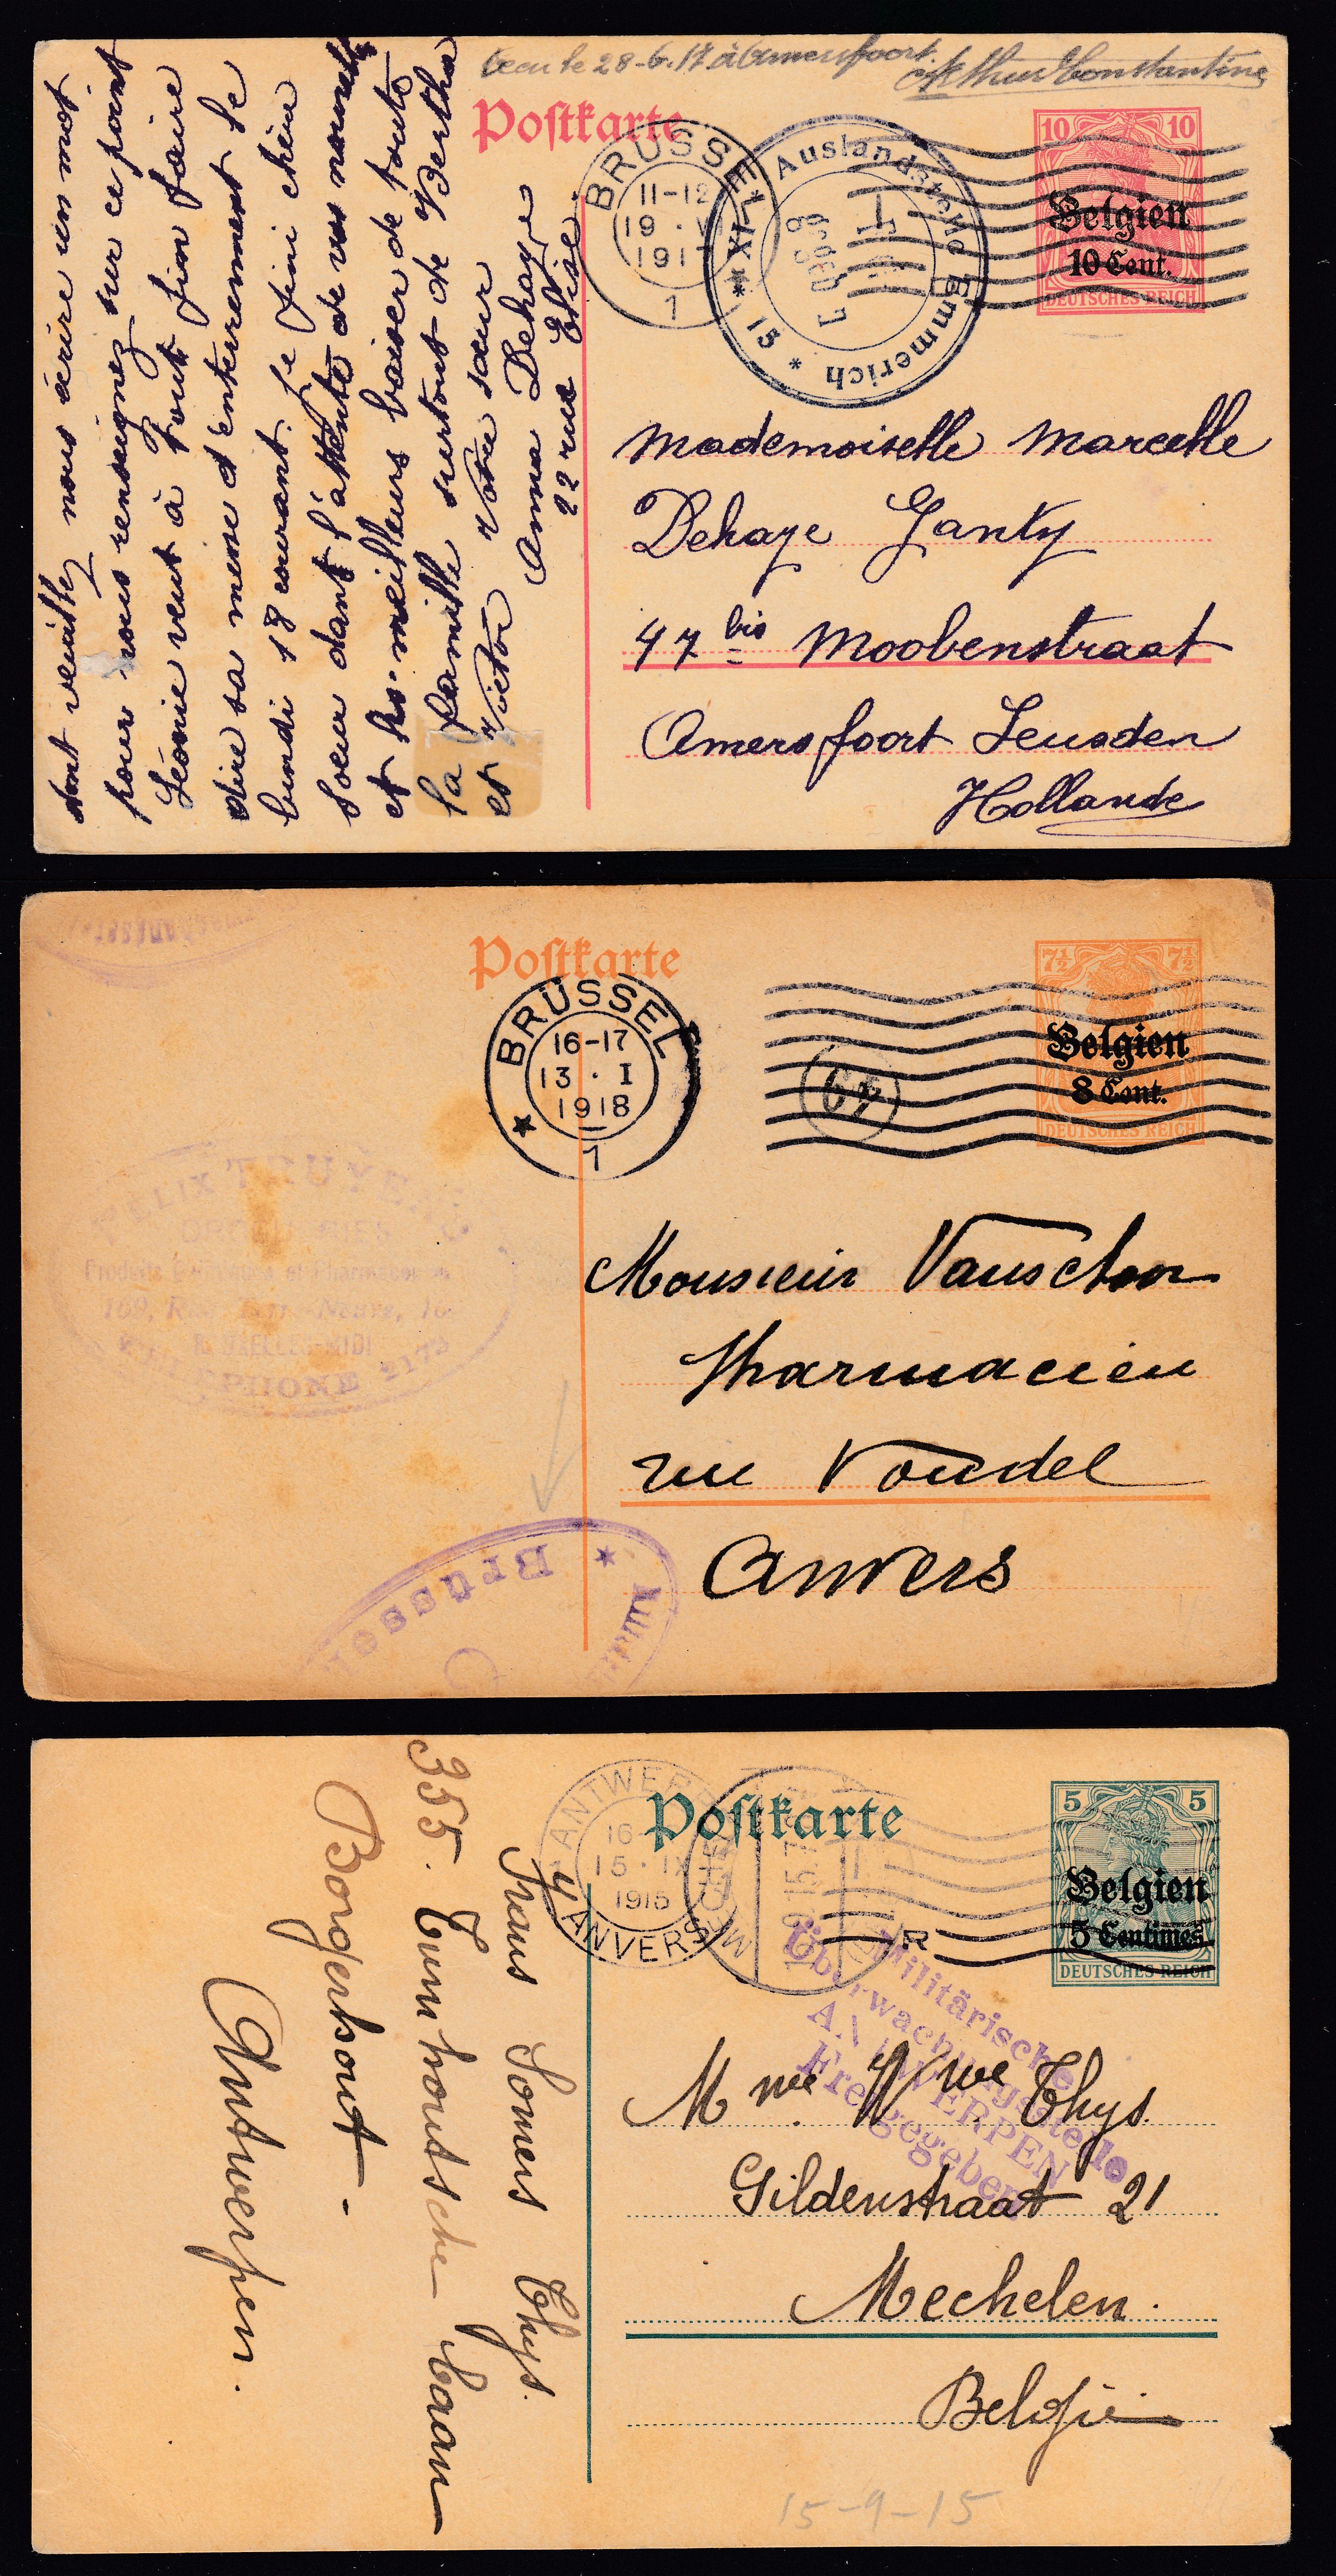 recu le 28-6.17 à Amersfoort.
Arthur Constantine
Postkarte
BRÜSSEL
11-12
19 · V
191
1
Auslandsstelle Emmerich
* 15 * XI. *
10 10
Belgien
10 Cent.
DEUTSCHES REICH
Mademoiselle Marcelle
Dehaye Janty
47 bis Moobenstraat
Amersfoort Leusden
Hollande
dont veuillez nous écrire un mot
pour nous renseignez sur ce point
Léonie veut à tout fin faire
dire sa messe d'enterrement le
lundi 18 courant. Je fini chère
soeur dant l'attente de vos nouvelles
et les meilleurs baiser de toute
la famille surtout de Bertha
et Victor Votre soeur
Anna Dehaye
22 rue Elise.
Postkarte
BRÜSSEL
16-17
13 · I
1918
1
49
7½ 7½
Belgien
8 Cent.
DEUTSCHES REICH
FELIX TRUYENS
169, Rue Terre-Neuve, 16
BRUXELLES-MIDI
TELEPHONE 2172
Monsieur Vanschoor
Pharmacien
rue Vondel
Anvers
Brüssel
Postkarte
ANTWERPEN
16-
15 · IX
1915
4 ANVERS
MECHELN
R
5 5
Belgien
5 Centimes
DEUTSCHES REICH
Militärische
Überwachungsstelle
ANTWERPEN
Freigegeben
Mme Wwe Thys.
Gildenstraat 21
Mechelen.
België
Frans Somers Thys.
355. Turnhoutsche baan
Borgerhout -
Antwerpen.
15-9-15